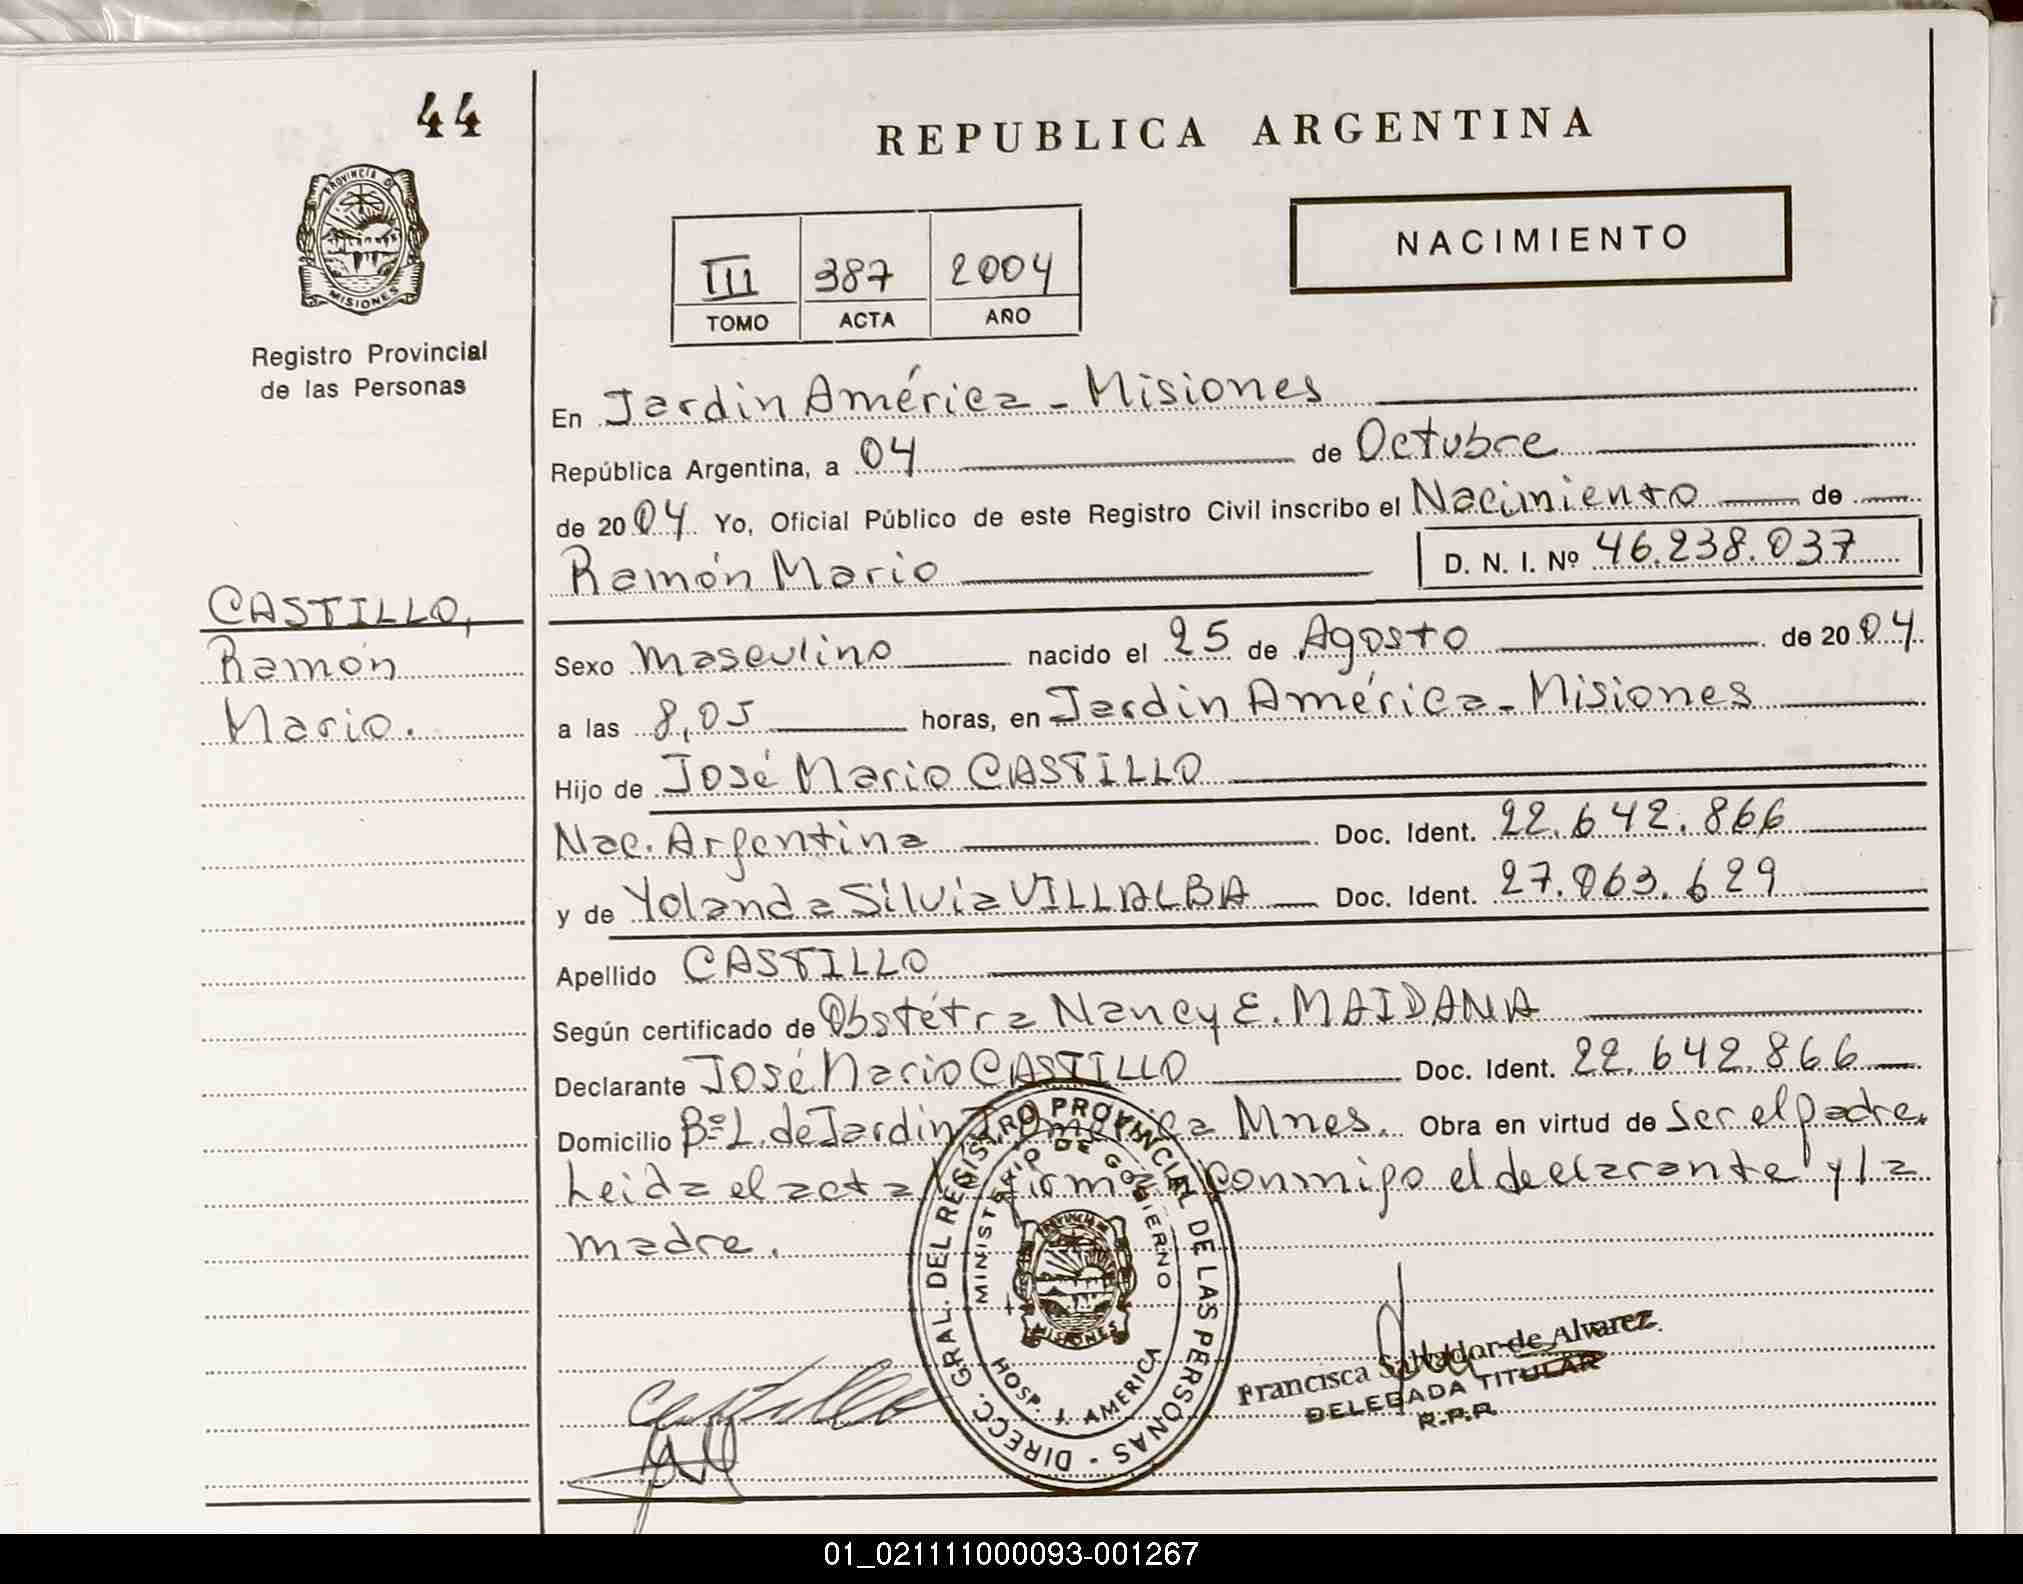 44
REPUBLICA ARGENTINA
PROVINCIA DE
MISIONES
NACIMIENTO
III 387 2004
TOMO ACTA AÑO
Registro Provincial
de las Personas
En Jardin América - Misiones
República Argentina, a 04 de Octubre
de 2004 Yo, Oficial Público de este Registro Civil inscribo el Nacimiento de
Ramón Mario D. N. I. Nº 46.238.037
CASTILLO,
Ramón
Mario.
Sexo masculino nacido el 25 de Agosto de 2004
a las 8,05 horas, en Jardin América - Misiones
Hijo de José Mario CASTILLO
Nac. Argentina Doc. Ident. 22.642.866
y de Yolanda Silvia VILLALBA Doc. Ident. 27.063.629
Apellido CASTILLO
Según certificado de Obstétra Nancy E. MAIDANA
Declarante José Mario CASTILLO Doc. Ident. 22.642.866
Domicilio Bº L. de Jardin América Mnes. Obra en virtud de ser el padre.
Leida el acta firman conmigo el declarante y la
madre.
DIRECC. GRAL. DEL REGISTRO PROVINCIAL DE LAS PERSONAS -
MINISTERIO DE GOBIERNO
PROVINCIA DE
MISIONES
HOSP. J. AMERICA
Castillo
Francisca Salvador de Alvarez
DELEGADA TITULAR
R.P.P.
01_021111000093-001267